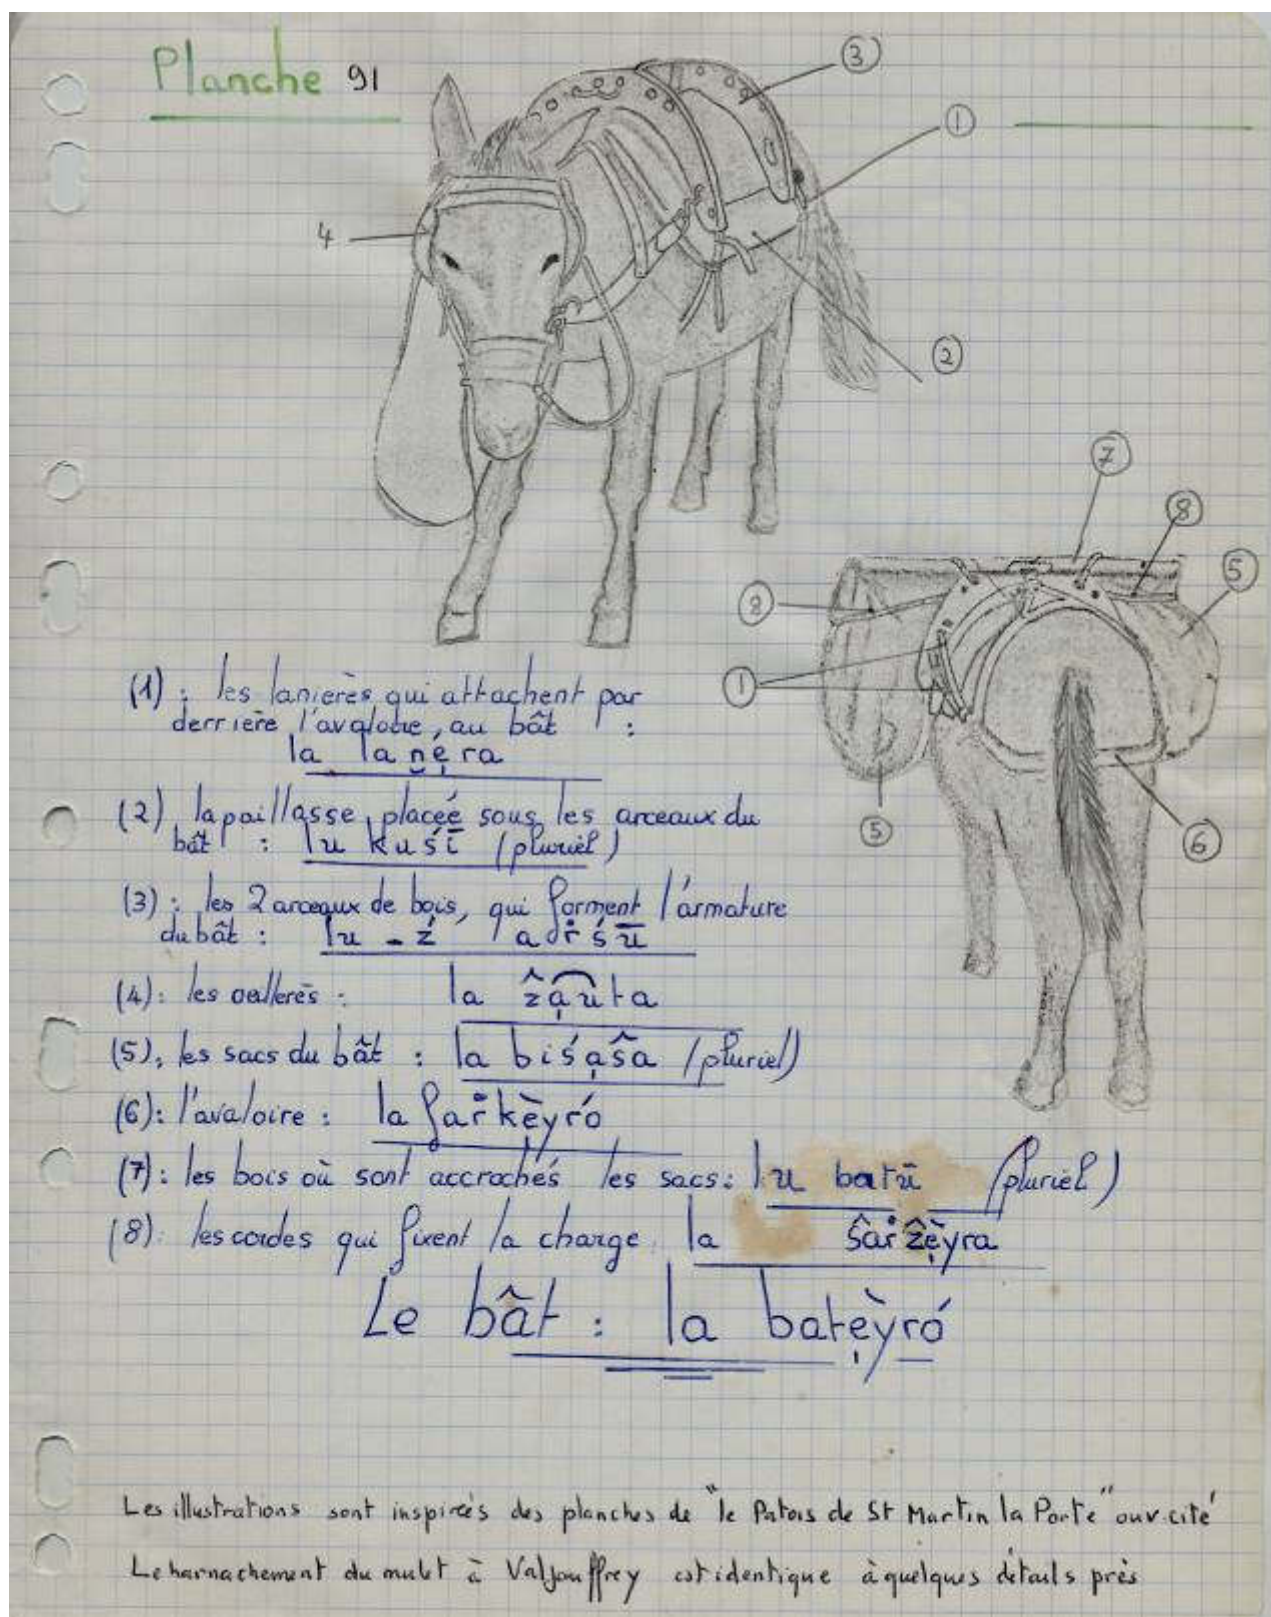 Planche 91
③
①
4
②
⑦
⑧
⑤
⑧
①
⑤
⑥
(1) : les lanières qui attachent par
derrière l'avaloire, au bât :
la lan̮ẹra
(2) la paillasse placée sous les arceaux du
bât : lu kuśī (pluriel)
(3) : les 2 arceaux de bois, qui forment l'armature
du bât : lu - ź
(4) : les oeillères : la
(5) : les sacs du bât : la biśạŝa (pluriel)
(6) : l'avaloire : la far̊kẹ̀yró
(7) : les bois où sont accrochés les sacs : lu batū (pluriel)
(8) : les cordes qui fixent la charge la ŝar̊ẑẹ̀yra
Le bât : la batẹ̀yró
Les illustrations sont inspirées des planches de "le Patois de St Martin la Porte" ouv. cité
Le harnachement du mulet à Valjouffrey est identique à quelques détails près